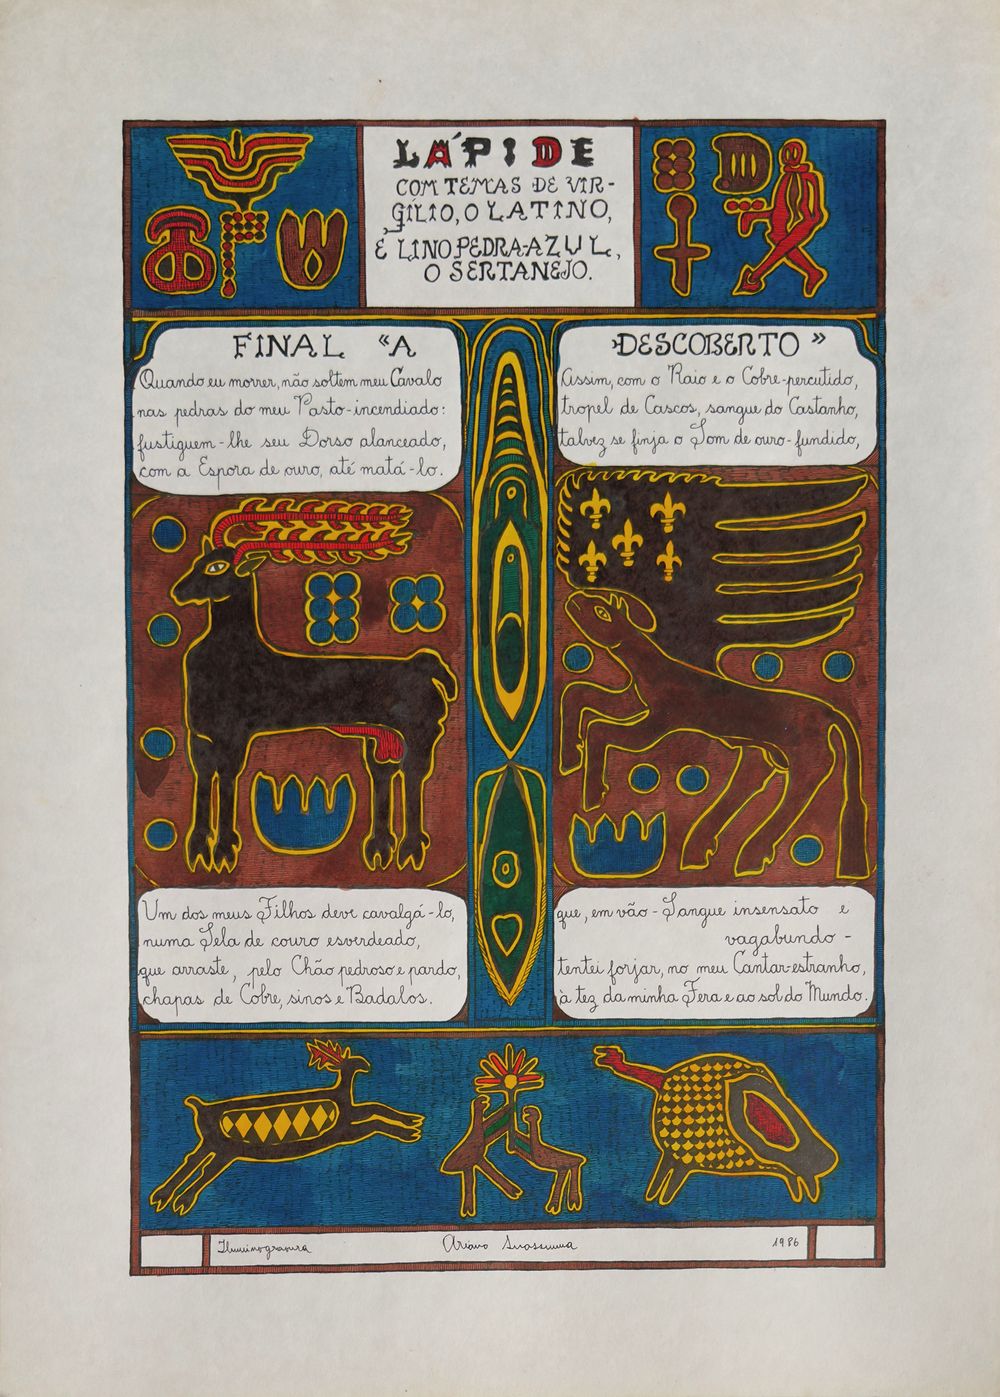 LÁPIDE
COM TEMAS DE VIR-
GÍLIO, O LATINO,
E LINO PEDRA-AZUL,
O SERTANEJO.
FINAL "A
Quando eu morrer, não soltem meu Cavalo
nas pedras do meu Pasto-incendiado:
fustiguem-lhe seu Dorso alanceado,
com a Espora de ouro, até matá-lo.
Um dos meus Filhos deve cavalgá-lo,
numa Sela de couro esverdeado,
que arraste, pelo Chão pedroso e pardo,
chapas de Cobre, sinos e Badalos.
DESCOBERTO"
Assim, com o Raio e o Cobre-percutido,
tropel de Cascos, sangue do Castanho,
talvez se finja o Som de ouro-fundido,
que, em vão - Sangue insensato e
vagabundo -
tentei forjar, no meu Cantar-estranho,
à tez da minha Fera e ao sol do Mundo.
Iluminogravura
Ariano Suassuna
1986